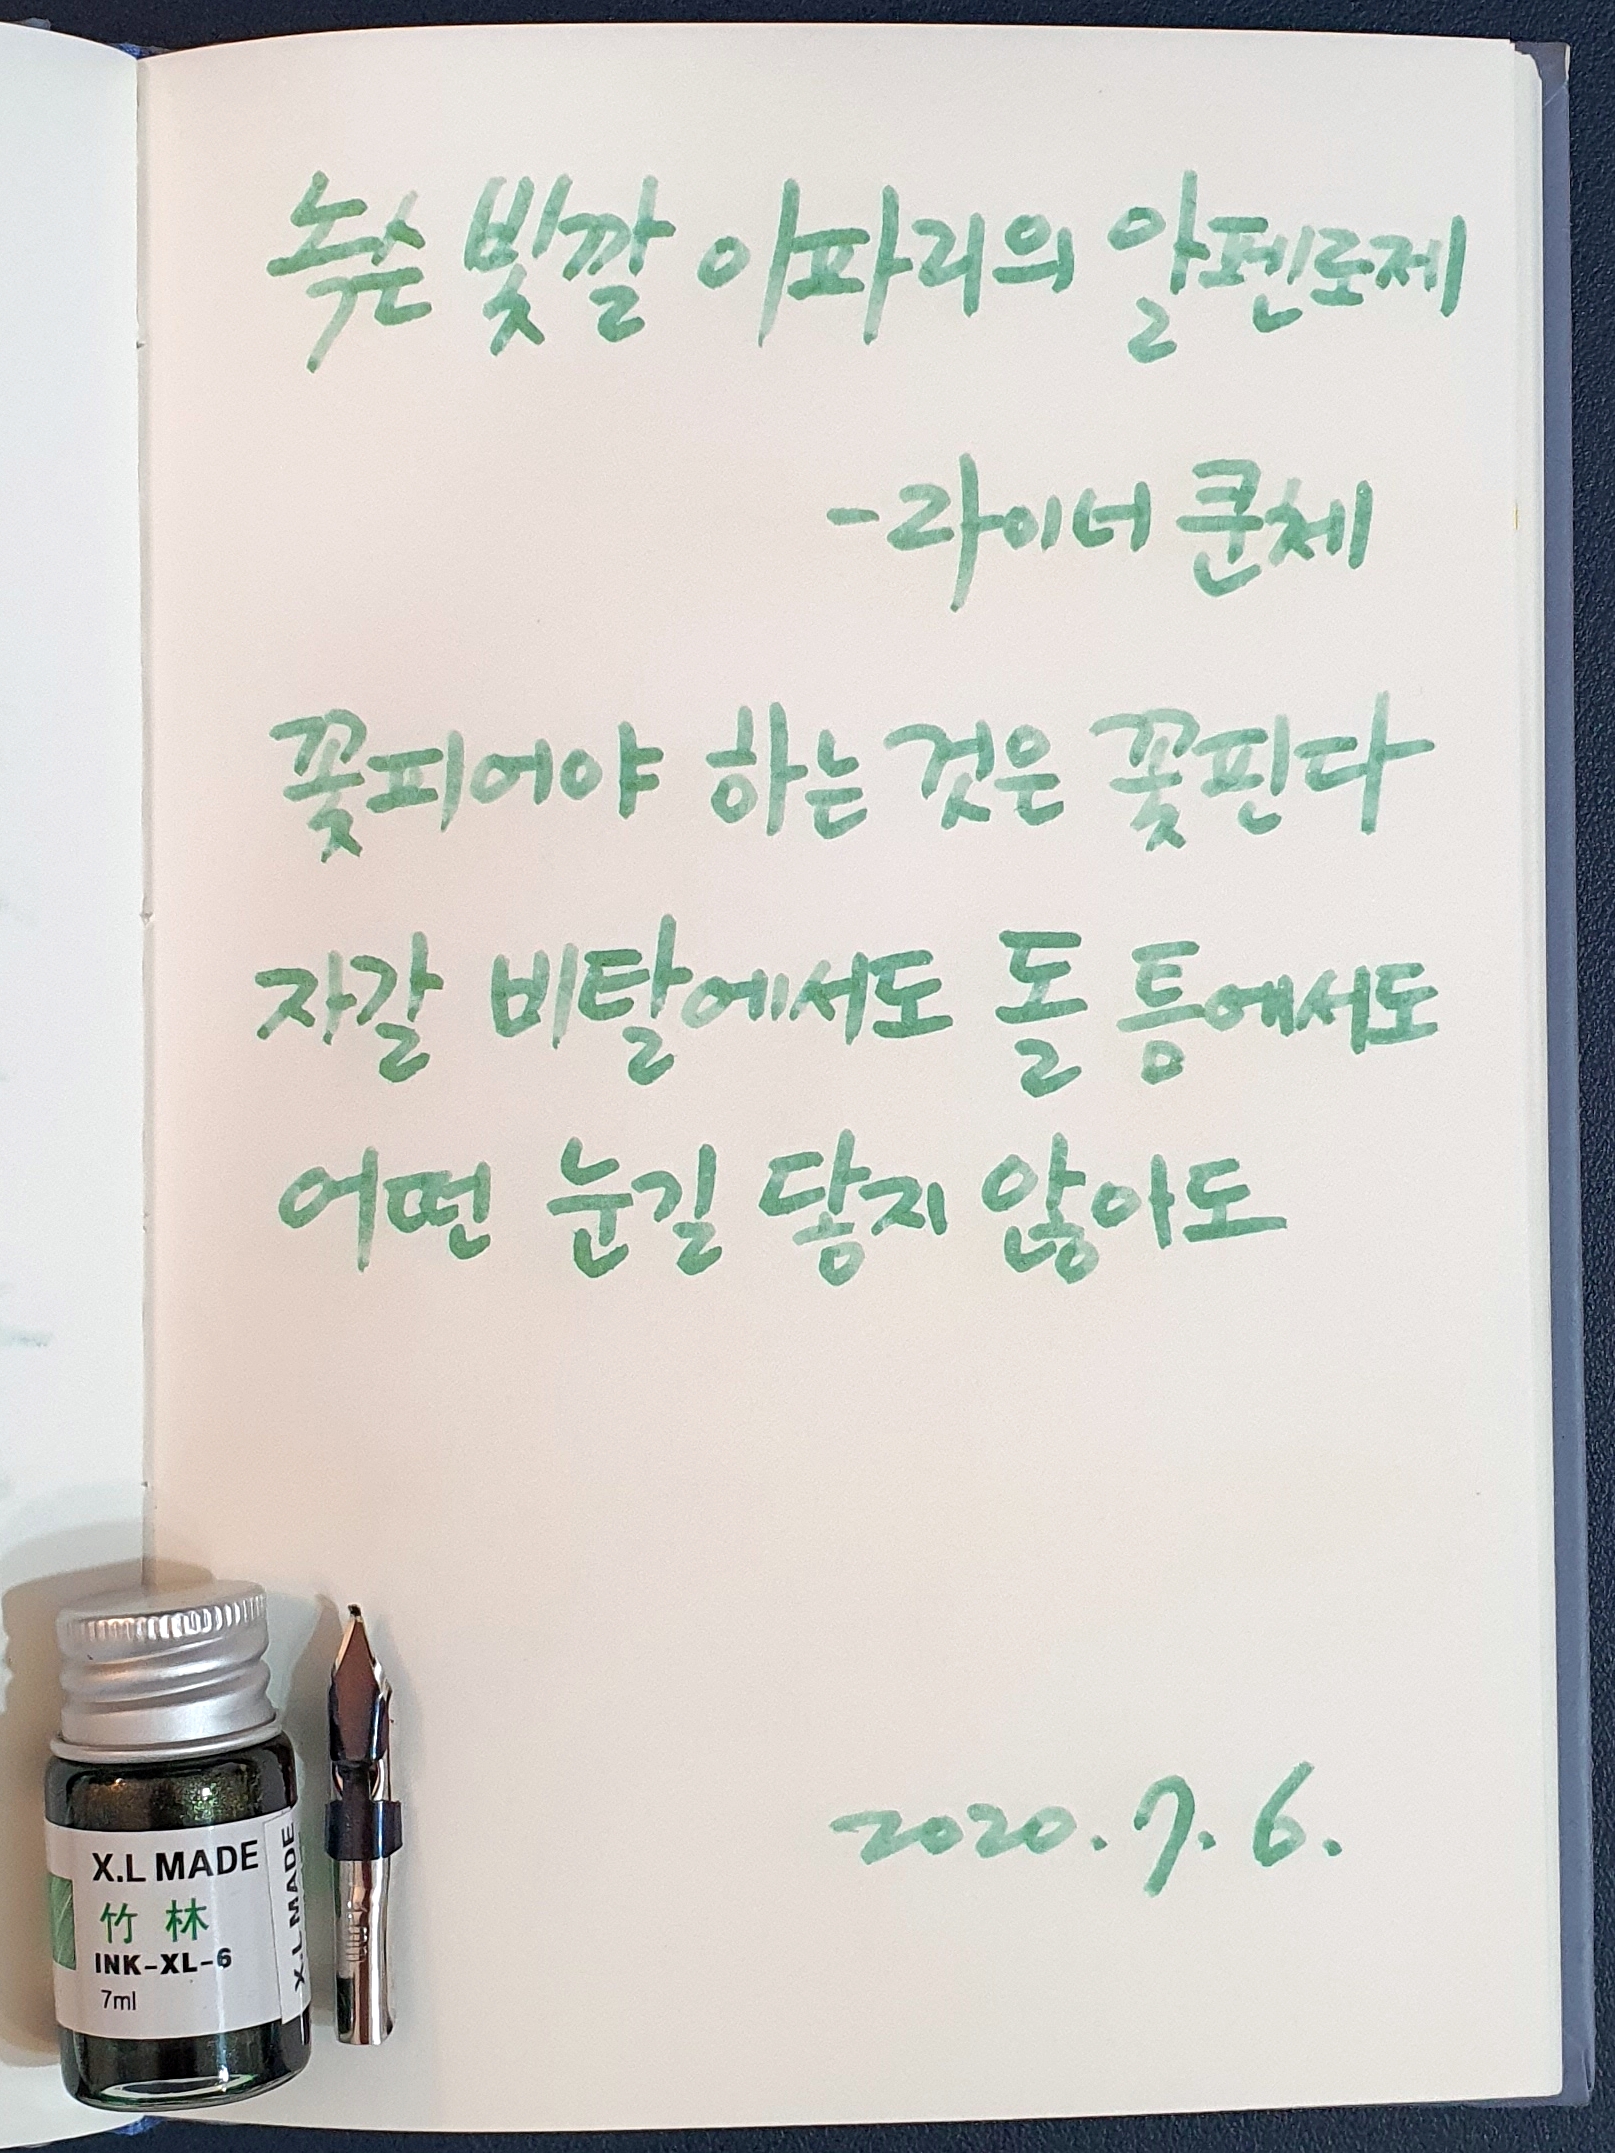 녹슨 빛깔 이파리의 알펜로제
-라이너 쿤체
꽃피어야 하는 것은 꽃핀다
자갈 비탈에서도 돌 틈에서도
어떤 눈길 닿지 않아도
2020. 7. 6.
X.L MADE
竹林
INK-XL-6
7ml
X.L MADE